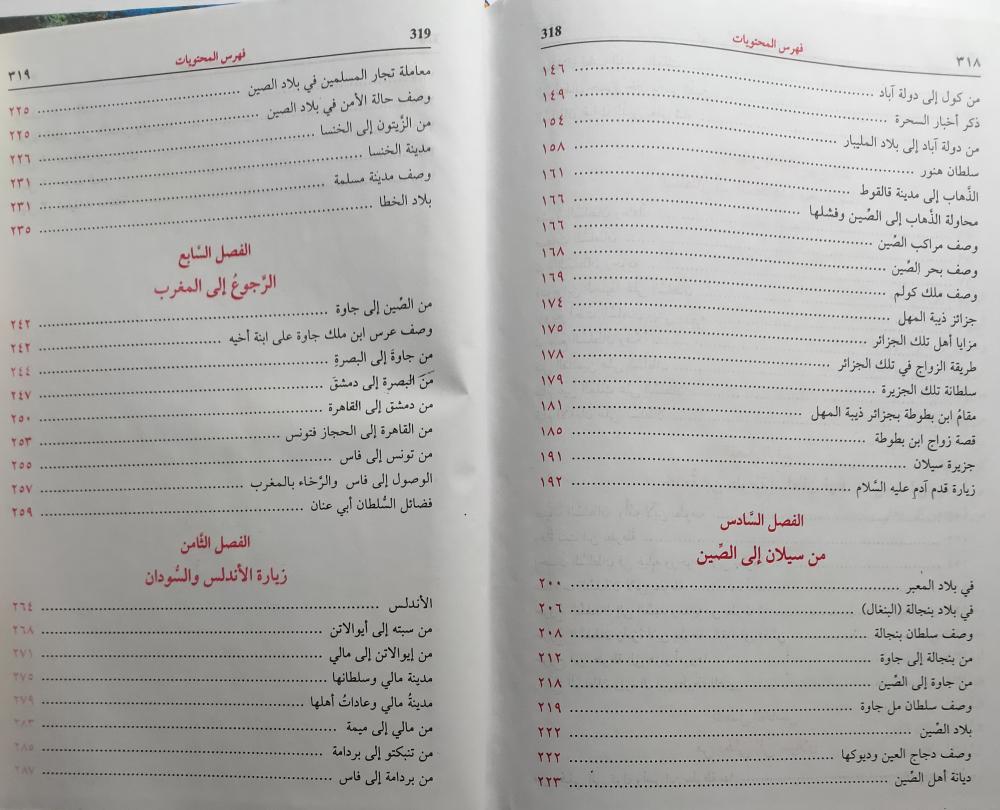 318 فهرس المحتويات ٣١٨
من كول إلى دولة آباد ........ ١٤٦
ذكر أخبار السحرة ........ ١٤٩
من دولة آباد إلى بلاد المليبار ........ ١٥٤
سلطان هنور ........ ١٥٨
الذَّهاب إلى مدينة قالقوط ........ ١٦١
محاولة الذَّهاب إلى الصِّين وفشلها ........ ١٦٦
وصف مراكب الصِّين ........ ١٦٦
وصف بحر الصِّين ........ ١٦٨
وصف ملك كولم ........ ١٦٩
جزائر ذيبة المهل ........ ١٧٤
مزايا أهل تلك الجزائر ........ ١٧٥
طريقة الزواج في تلك الجزائر ........ ١٧٨
سلطانة تلك الجزيرة ........ ١٧٩
مقامُ ابن بطوطة بجزائر ذيبة المهل ........ ١٨١
قصة زواج ابن بطوطة ........ ١٨٥
جزيرة سيلان ........ ١٩١
زيارة قدم آدم عليه السَّلام ........ ١٩٢
الفصل السَّادس
من سيلان إلى الصِّين
في بلاد المعبر ........ ٢٠٠
في بلاد بنجالة (البنغال) ........ ٢٠٦
وصف سلطان بنجالة ........ ٢٠٨
من بنجالة إلى جاوة ........ ٢١٢
من جاوة إلى الصِّين ........ ٢١٨
وصف سلطان مل جاوة ........ ٢١٩
بلاد الصِّين ........ ٢٢٢
وصف دجاج العين وديوكها ........ ٢٢٢
ديانة أهل الصِّين ........ ٢٢٣
319 فهرس المحتويات ٣١٩
معاملة تجار المسلمين في بلاد الصين ........ ٢٢٥
وصف حالة الأمن في بلاد الصين ........ ٢٢٥
من الزَّيتون إلى الخنسا ........ ٢٢٦
مدينة الخنسا ........ ٢٣١
وصف مدينة مسلمة ........ ٢٣١
بلاد الخطا ........ ٢٣٥
الفصل السَّابع
الرَّجوعُ إلى المغرب
من الصِّين إلى جاوة ........ ٢٤٢
وصف عرس ابن ملك جاوة على ابنة أخيه ........ ٢٤٢
من جاوةَ إلى البصرةِ ........ ٢٤٤
منَ البصرة إلى دمشقَ ........ ٢٤٧
من دمشق إلى القاهرة ........ ٢٥٠
من القاهرة إلى الحجاز فتونس ........ ٢٥٣
من تونس إلى فاس ........ ٢٥٥
الوصول إلى فاس والرَّخاء بالمغرب ........ ٢٥٧
فضائل السُّلطان أبي عنان ........ ٢٥٩
الفصل الثَّامن
زيارة الأندلس والسُّودان
الأندلس ........ ٢٦٤
من سبته إلى أيوالاتن ........ ٢٦٨
من إيوالاتن إلى مالي ........ ٢٧١
مدينة مالي وسلطانها ........ ٢٧٥
مدينةُ مالي وعاداتُ أهلها ........ ٢٧٩
من مالي إلى ميمة ........ ٢٨٣
من تنبكتو إلى بردامة ........ ٢٨٥
من بردامة إلى فاس ........ ٢٨٧